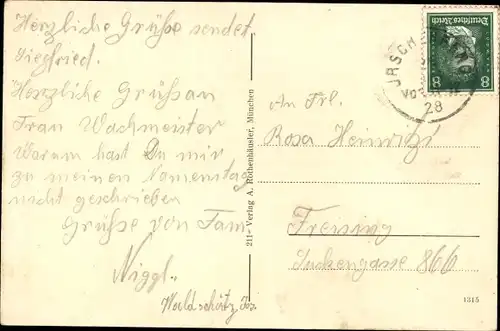 Herzliche Grüße sendet
Siegfried.
Herzliche Grüß an
Frau Wachmeister
Warum hast Du mir
zu meinen Namenstag
nicht geschrieben
Grüße von Fam.
Niggl.
211 - Verlag A. Rothenhäusler, München
An Frl.
Rosa
Freising
866
1315
Deutsches Reich
8 8
28